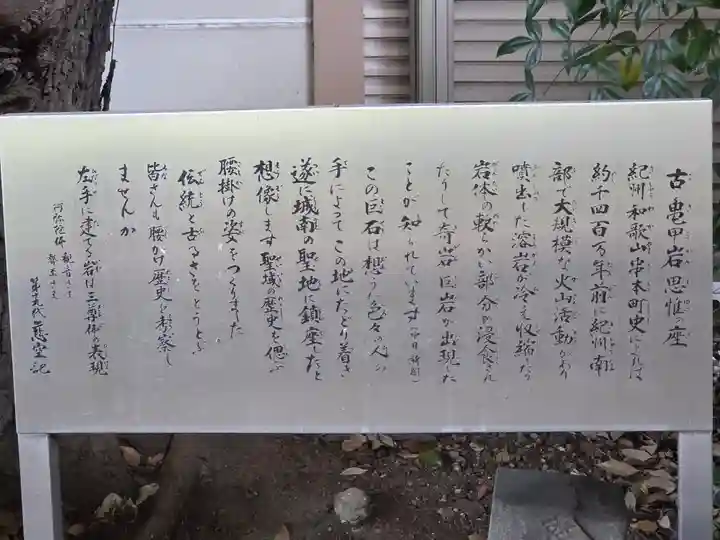 古亀甲岩思惟の座
紀州和歌山串本町史によれば
約千四百万年前に紀州南
部で大規模な火山活動があり
噴出した溶岩が冷え収縮したり
岩体の軟らかい部分が浸食され
たりして奇岩巨岩が出現した
ことが知られています
この巨石は想うに色々の人の
手によってこの地にたどり着き
遂に城南の聖地に鎮座したと
想像します聖域の歴史を偲ぶ
腰掛けの姿をつくりました
伝統と古るきをとうとぶ
皆さんも腰かけ歴史を考察し
ませんか
左手に建てる岩は三尊佛の表現
阿弥陀佛
観音さま
第十九代 記